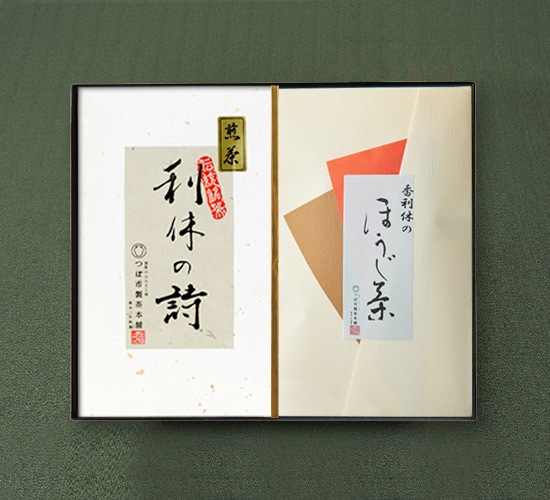 煎茶
利休の詩
つぼ市製茶本舗
香利休の
ほうじ茶
つぼ市製茶本舗